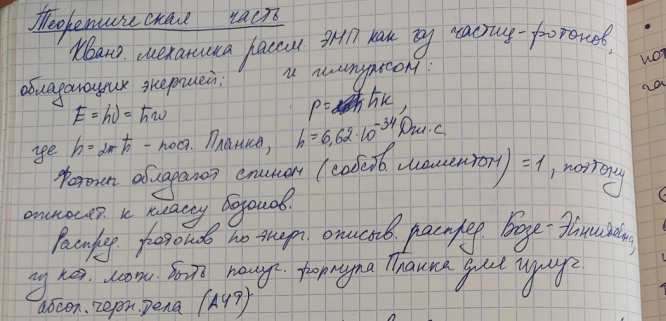 Теоретическая часть
Квант. механика рассм ЭМП как газ частиц-фотонов,
обладающих энергией: и импульсом:
E = hν = ħω p = ħk,
где h = 2πħ - пост. Планка, h = 6,62·10⁻³⁴ Дж·с
Фотоны обладают спином (собств. моментом) = 1, поэтому
относят. к классу бозонов.
Распред. фотонов по энерг. описыв. распред. Бозе-Эйнштейна,
из кот. мож. быть получ. формула Планка для излуч.
абсол. черн. тела (АЧТ)